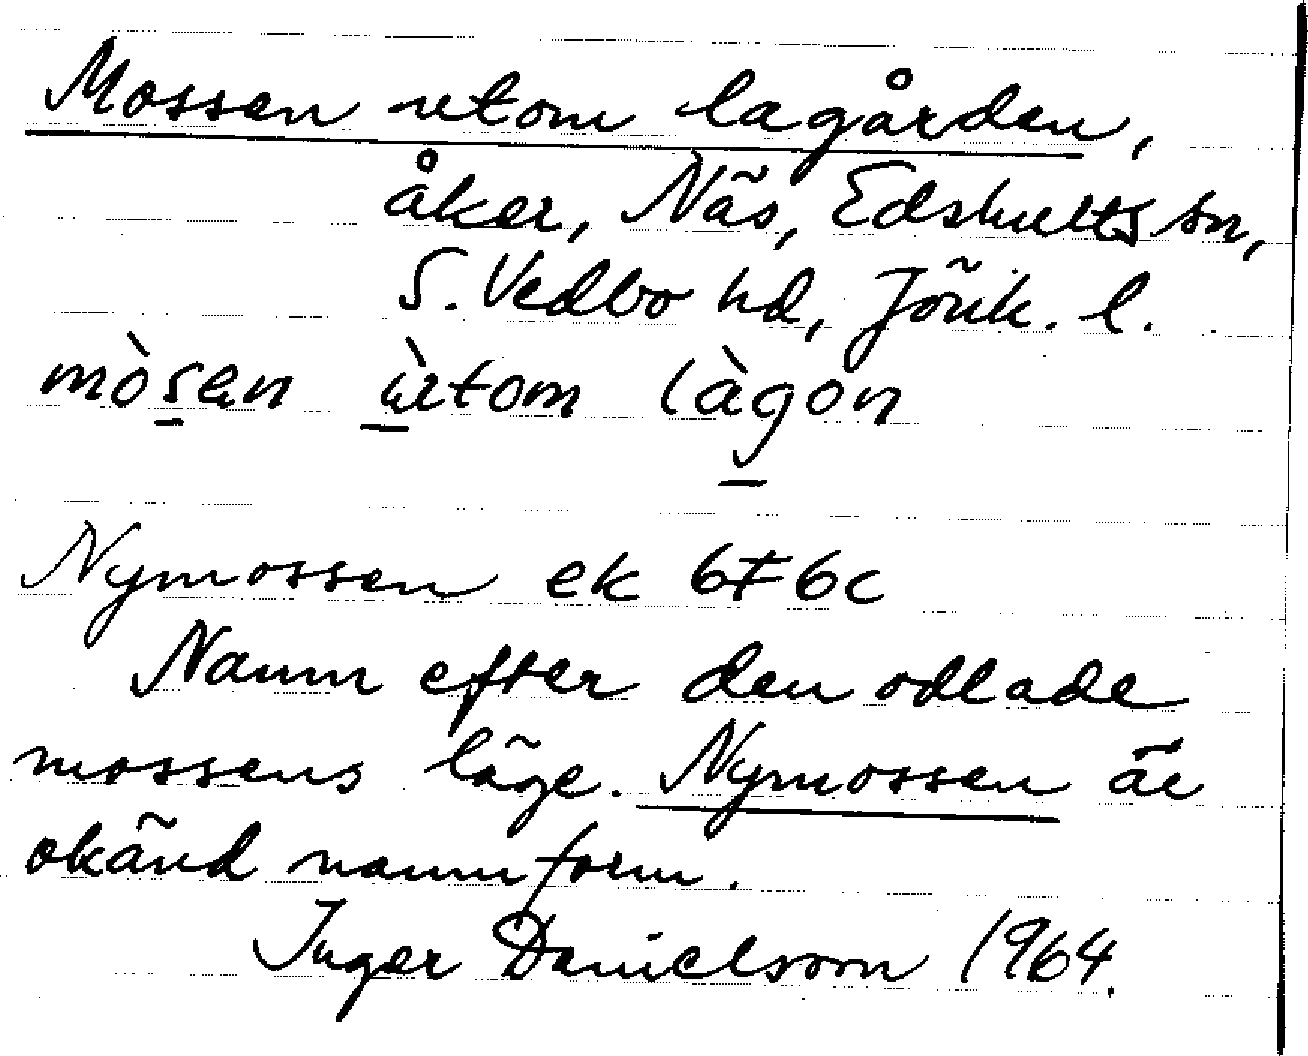 Mossen utom lagården,
åker, Näs, Edshults sn,
S. Vedbo hd, Jönk. l.
mòsen ùtom làgon
Nymossen ek 6F6c
Namn efter den odlade
mossens läge. Nymossen är
okänd namnform.
Inger Danielsson 1964.